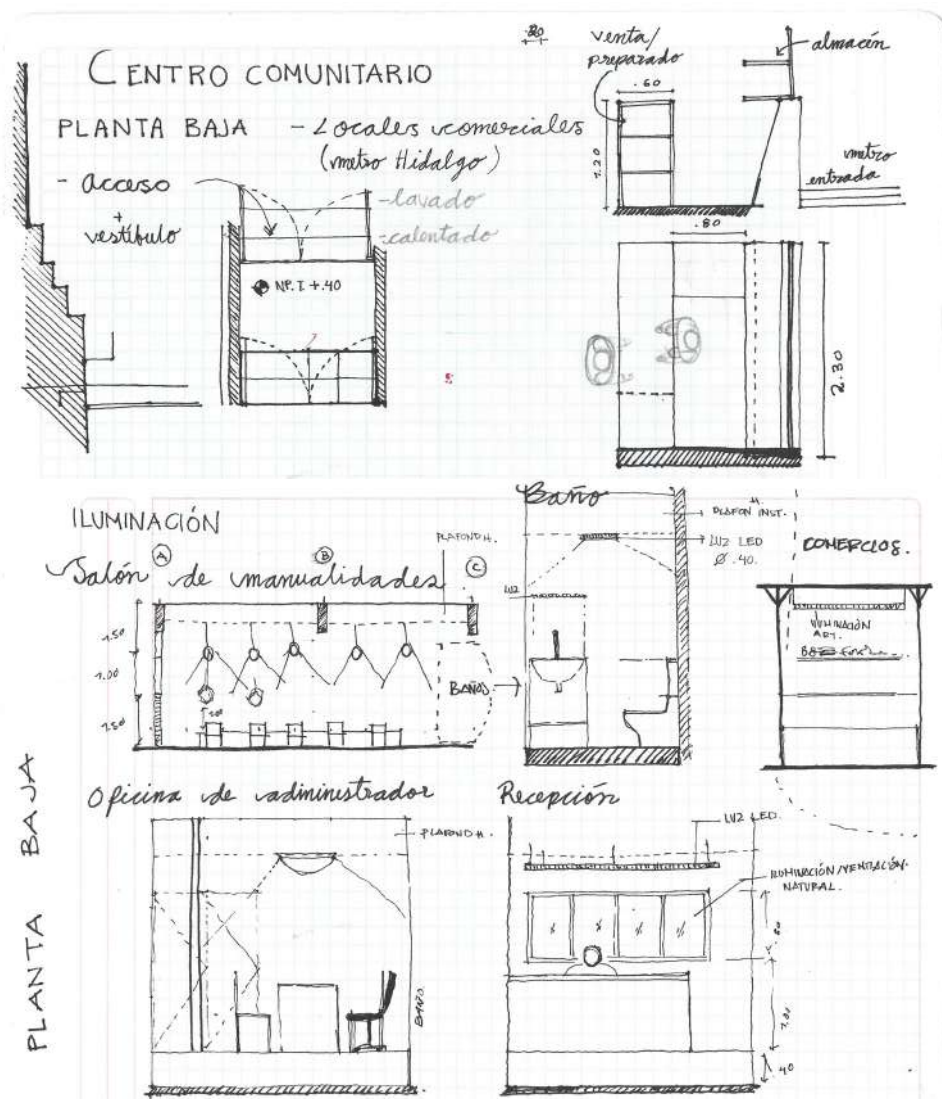 CENTRO COMUNITARIO
PLANTA BAJA - Locales comerciales
(metro Hidalgo)
- acceso
+
vestíbulo
- lavado
- calentado
N.P.T. +.40
.20
venta/
preparado
.60
1.20
almacén
metro
entrada
.80
2.30
ILUMINACIÓN
Salón de manualidades
A
B
C
PLAFOND H.
1.50
1.00
1.50
BAÑOS
Baño
PLAFON INST.
LUZ LED
Ø .40.
LUZ
COMERCIOS.
ILUMINACIÓN
ART.
PLANTA BAJA
Oficina de administrador
PLAFOND H.
BAÑO
Recepción
LUZ LED.
ILUMINACIÓN/VENTILACIÓN
NATURAL.
.80
1.00
.40